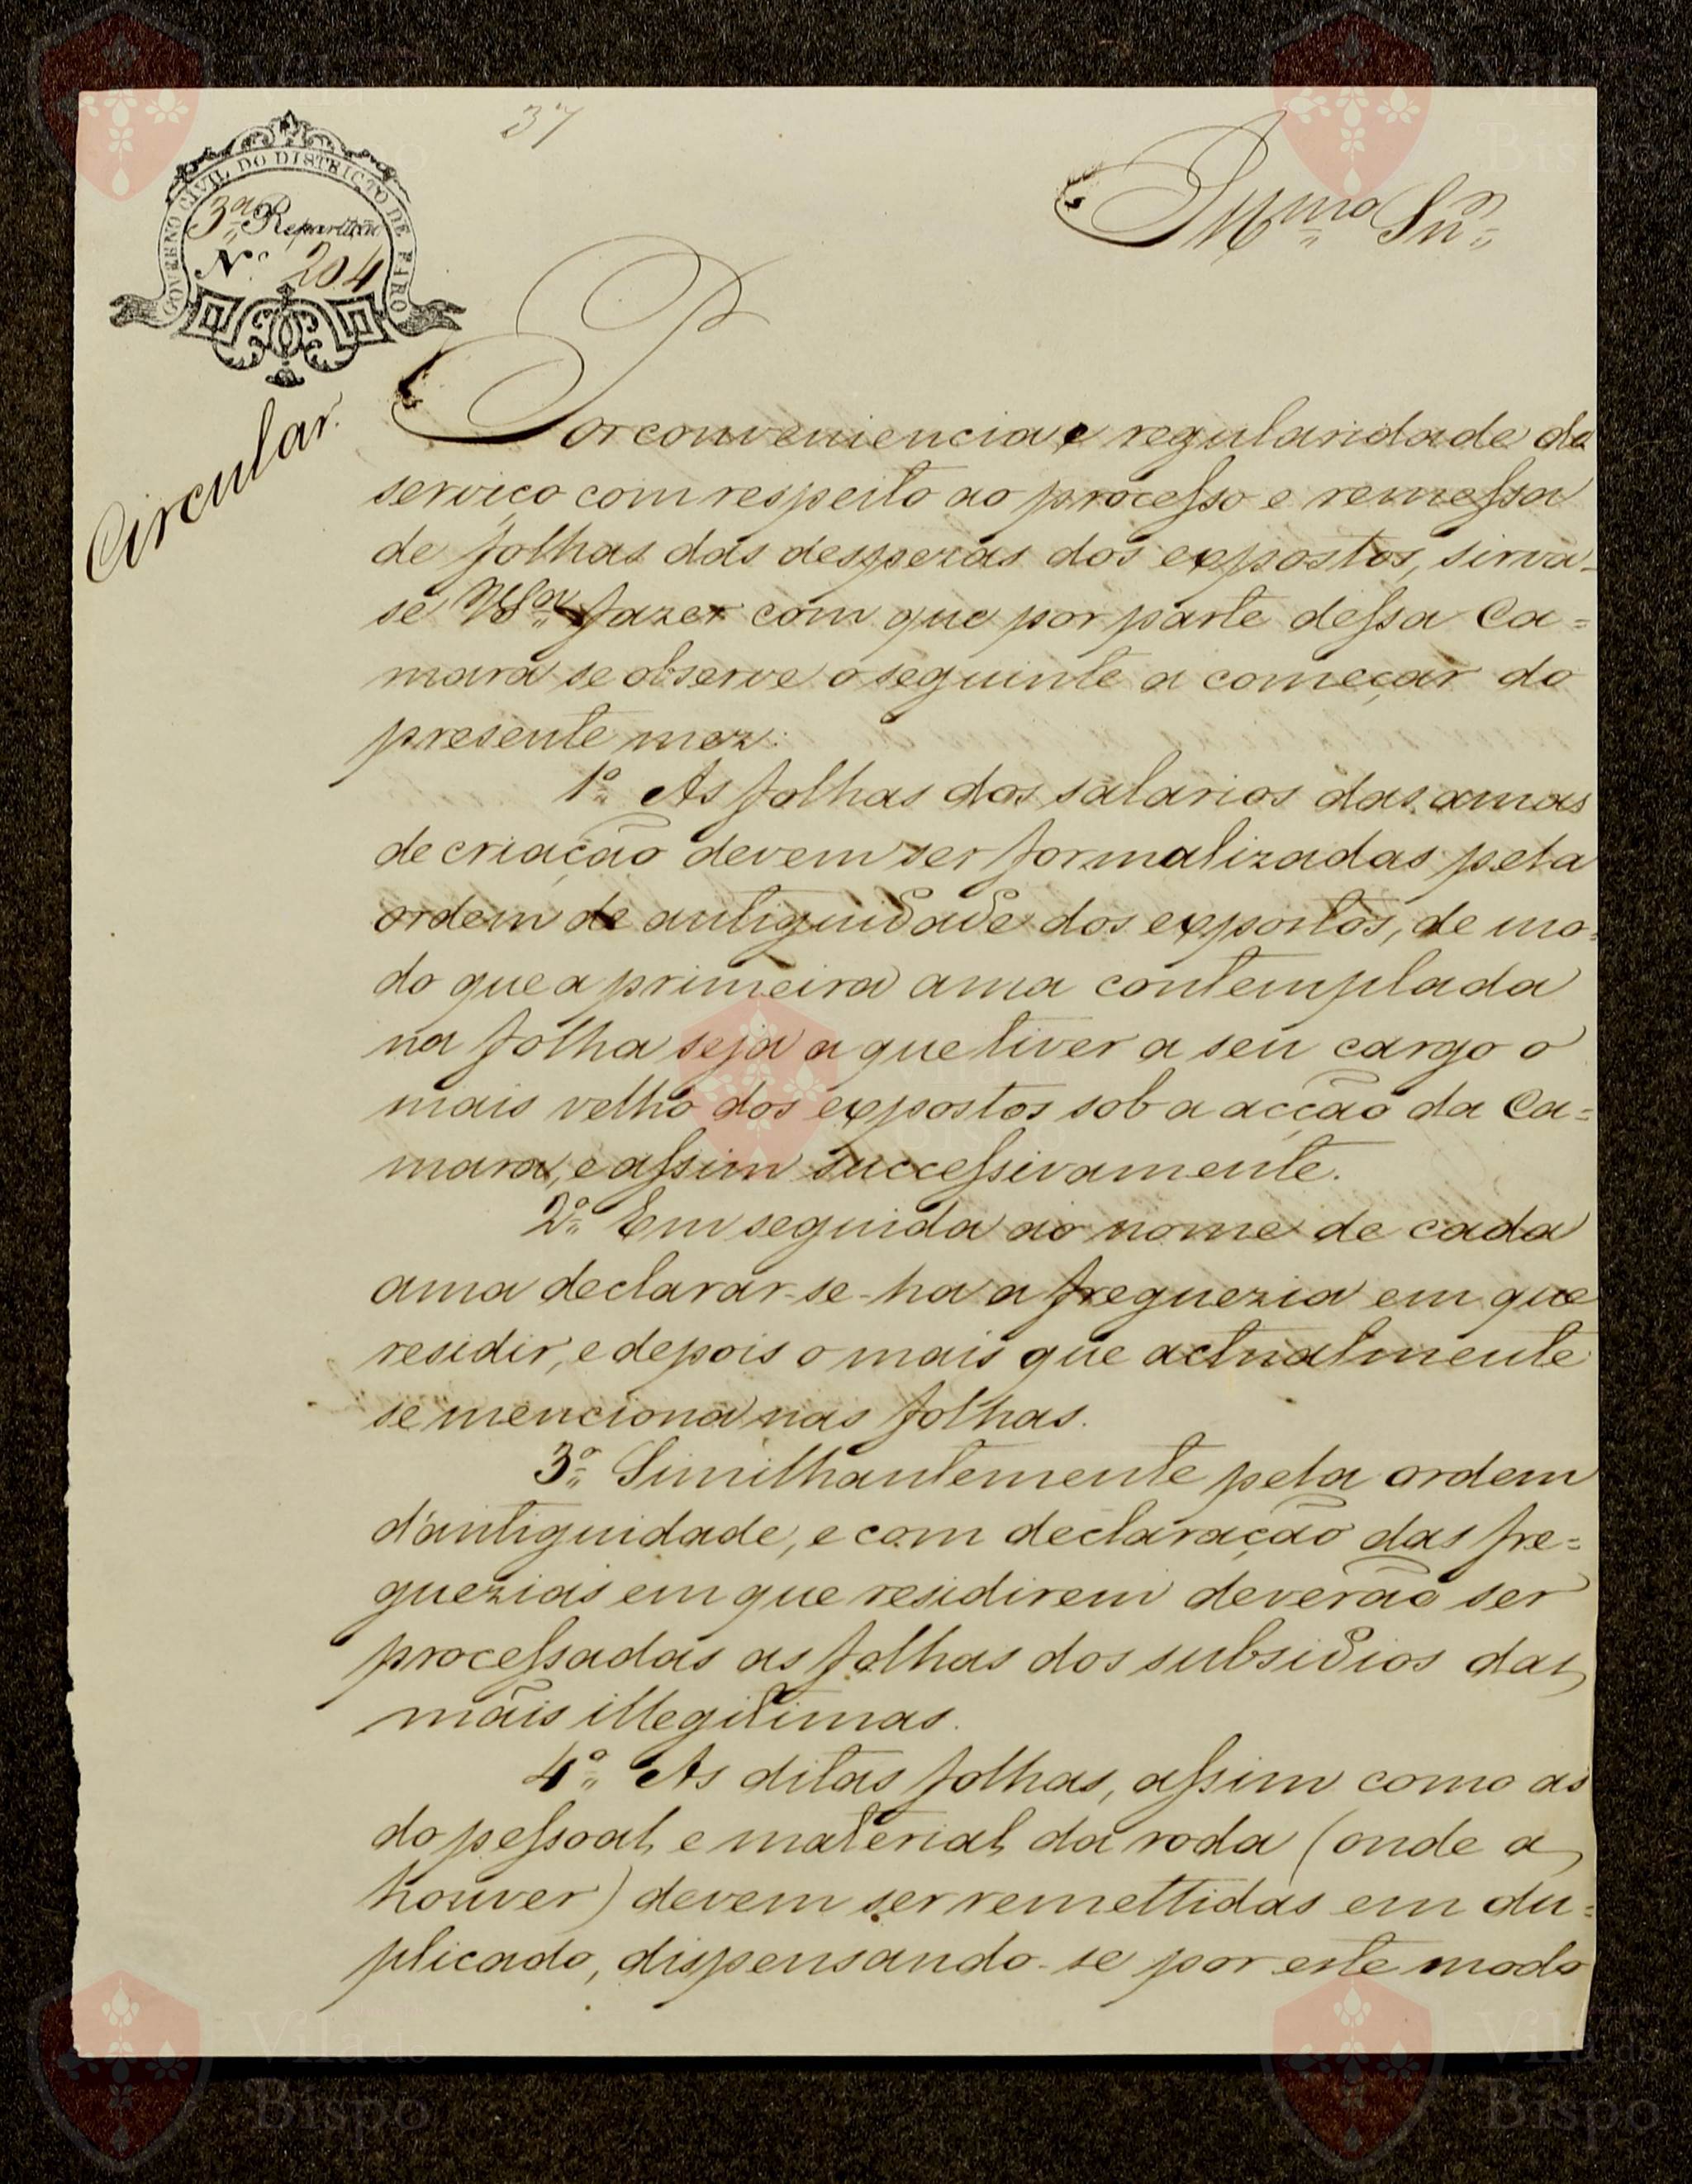 37
GOVERNO CIVIL DO DISTRICTO DE FARO
3ª Repartição
N.º 204
Illmo Snr
Circular.
Por conveniencia e regularidade do
serviço com respeito ao processo e remessa
de folhas das despezas dos expostos, sirva-
se VSª fazer com que por parte dessa Ca=
mara se observe o seguinte a começar do
presente mez:
1º As folhas dos salarios das amas
de criação devem ser formalizadas pela
ordem de antiguidade dos expostos, de mo=
do que a primeira ama contemplada
na folha seja a que tiver a seu cargo o
mais velho dos expostos sob a acção da Ca=
mara, e assim successivamente.
2º Em seguida ao nome de cada
ama declarar-se-ha a freguezia em que
residir, e depois o mais que actualmente
se menciona nas folhas.
3º Similhantemente pela ordem
d'antiguidade, e com declaração das fre=
guezias em que residirem deverão ser
processadas as folhas dos subsidios das
mãis illegitimas.
4º As ditas folhas, assim como as
do pessoal, e material da roda (onde a
houver) devem ser remettidas em du=
plicado, dispensando-se por este modo
Vila do
Bispo